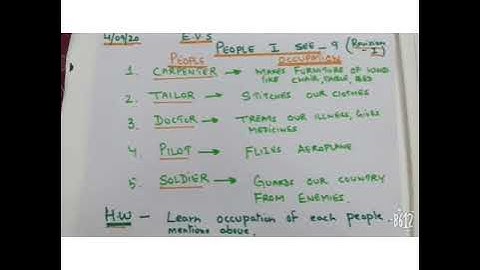 4/09/20 E.V.S
PEOPLE I SEE - 9 (Revision - I)
PEOPLE OCCUPATION
1. CARPENTER → MAKES FURNITURE OF WOOD
LIKE CHAIR, TABLE, BED
2. TAILOR → STITCHES OUR CLOTHES
3. DOCTOR → TREATS OUR ILLNESS, GIVES
MEDICINES
4. PILOT → FLIES AEROPLANE
5. SOLDIER → GUARDS OUR COUNTRY
FROM ENEMIES.
H.W - Learn occupation of each people
mentions above.
B612